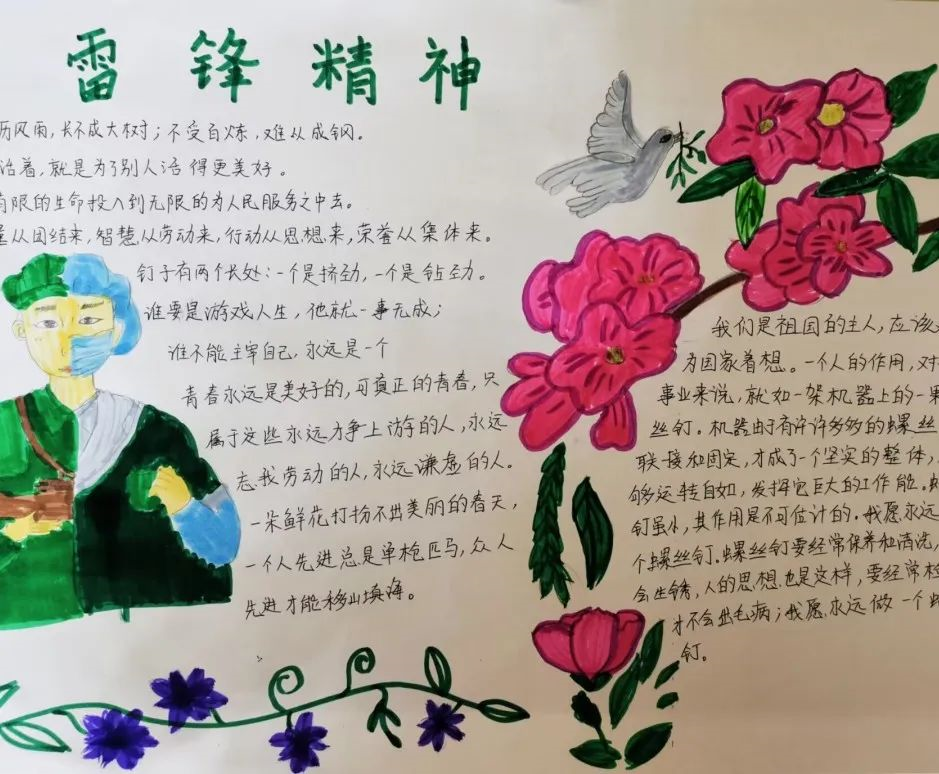 雷锋精神
历风雨,长不成大树;不受百炼,难以成钢。
活着,就是为了别人活得更美好。
有限的生命投入到无限的为人民服务之中去。
量从团结来,智慧从劳动来,行动从思想来,荣誉从集体来。
钉子有两个长处:一个是挤劲,一个是钻劲。
谁要是游戏人生,他就一事无成;
谁不能主宰自己,永远是一个
青春永远是美好的,可真正的青春,只
属于这些永远力争上游的人,永远
忘我劳动的人,永远谦虚的人。
一朵鲜花打扮不出美丽的春天,
一个人先进总是单枪匹马,众人
先进才能移山填海。
我们是祖国的主人,应该
为国家着想。一个人的作用,对
事业来说,就如一架机器上的一
丝钉。机器由于有许许多多的螺丝
联接和固定,才成了一个坚实的整体,
够运转自如,发挥它巨大的工作能。螺
钉虽小,其作用是不可估计的。我愿永远
个螺丝钉。螺丝钉要经常保养和清洗,
会生锈,人的思想也是这样,要经常检
才不会出毛病;我愿永远做一个螺
钉。